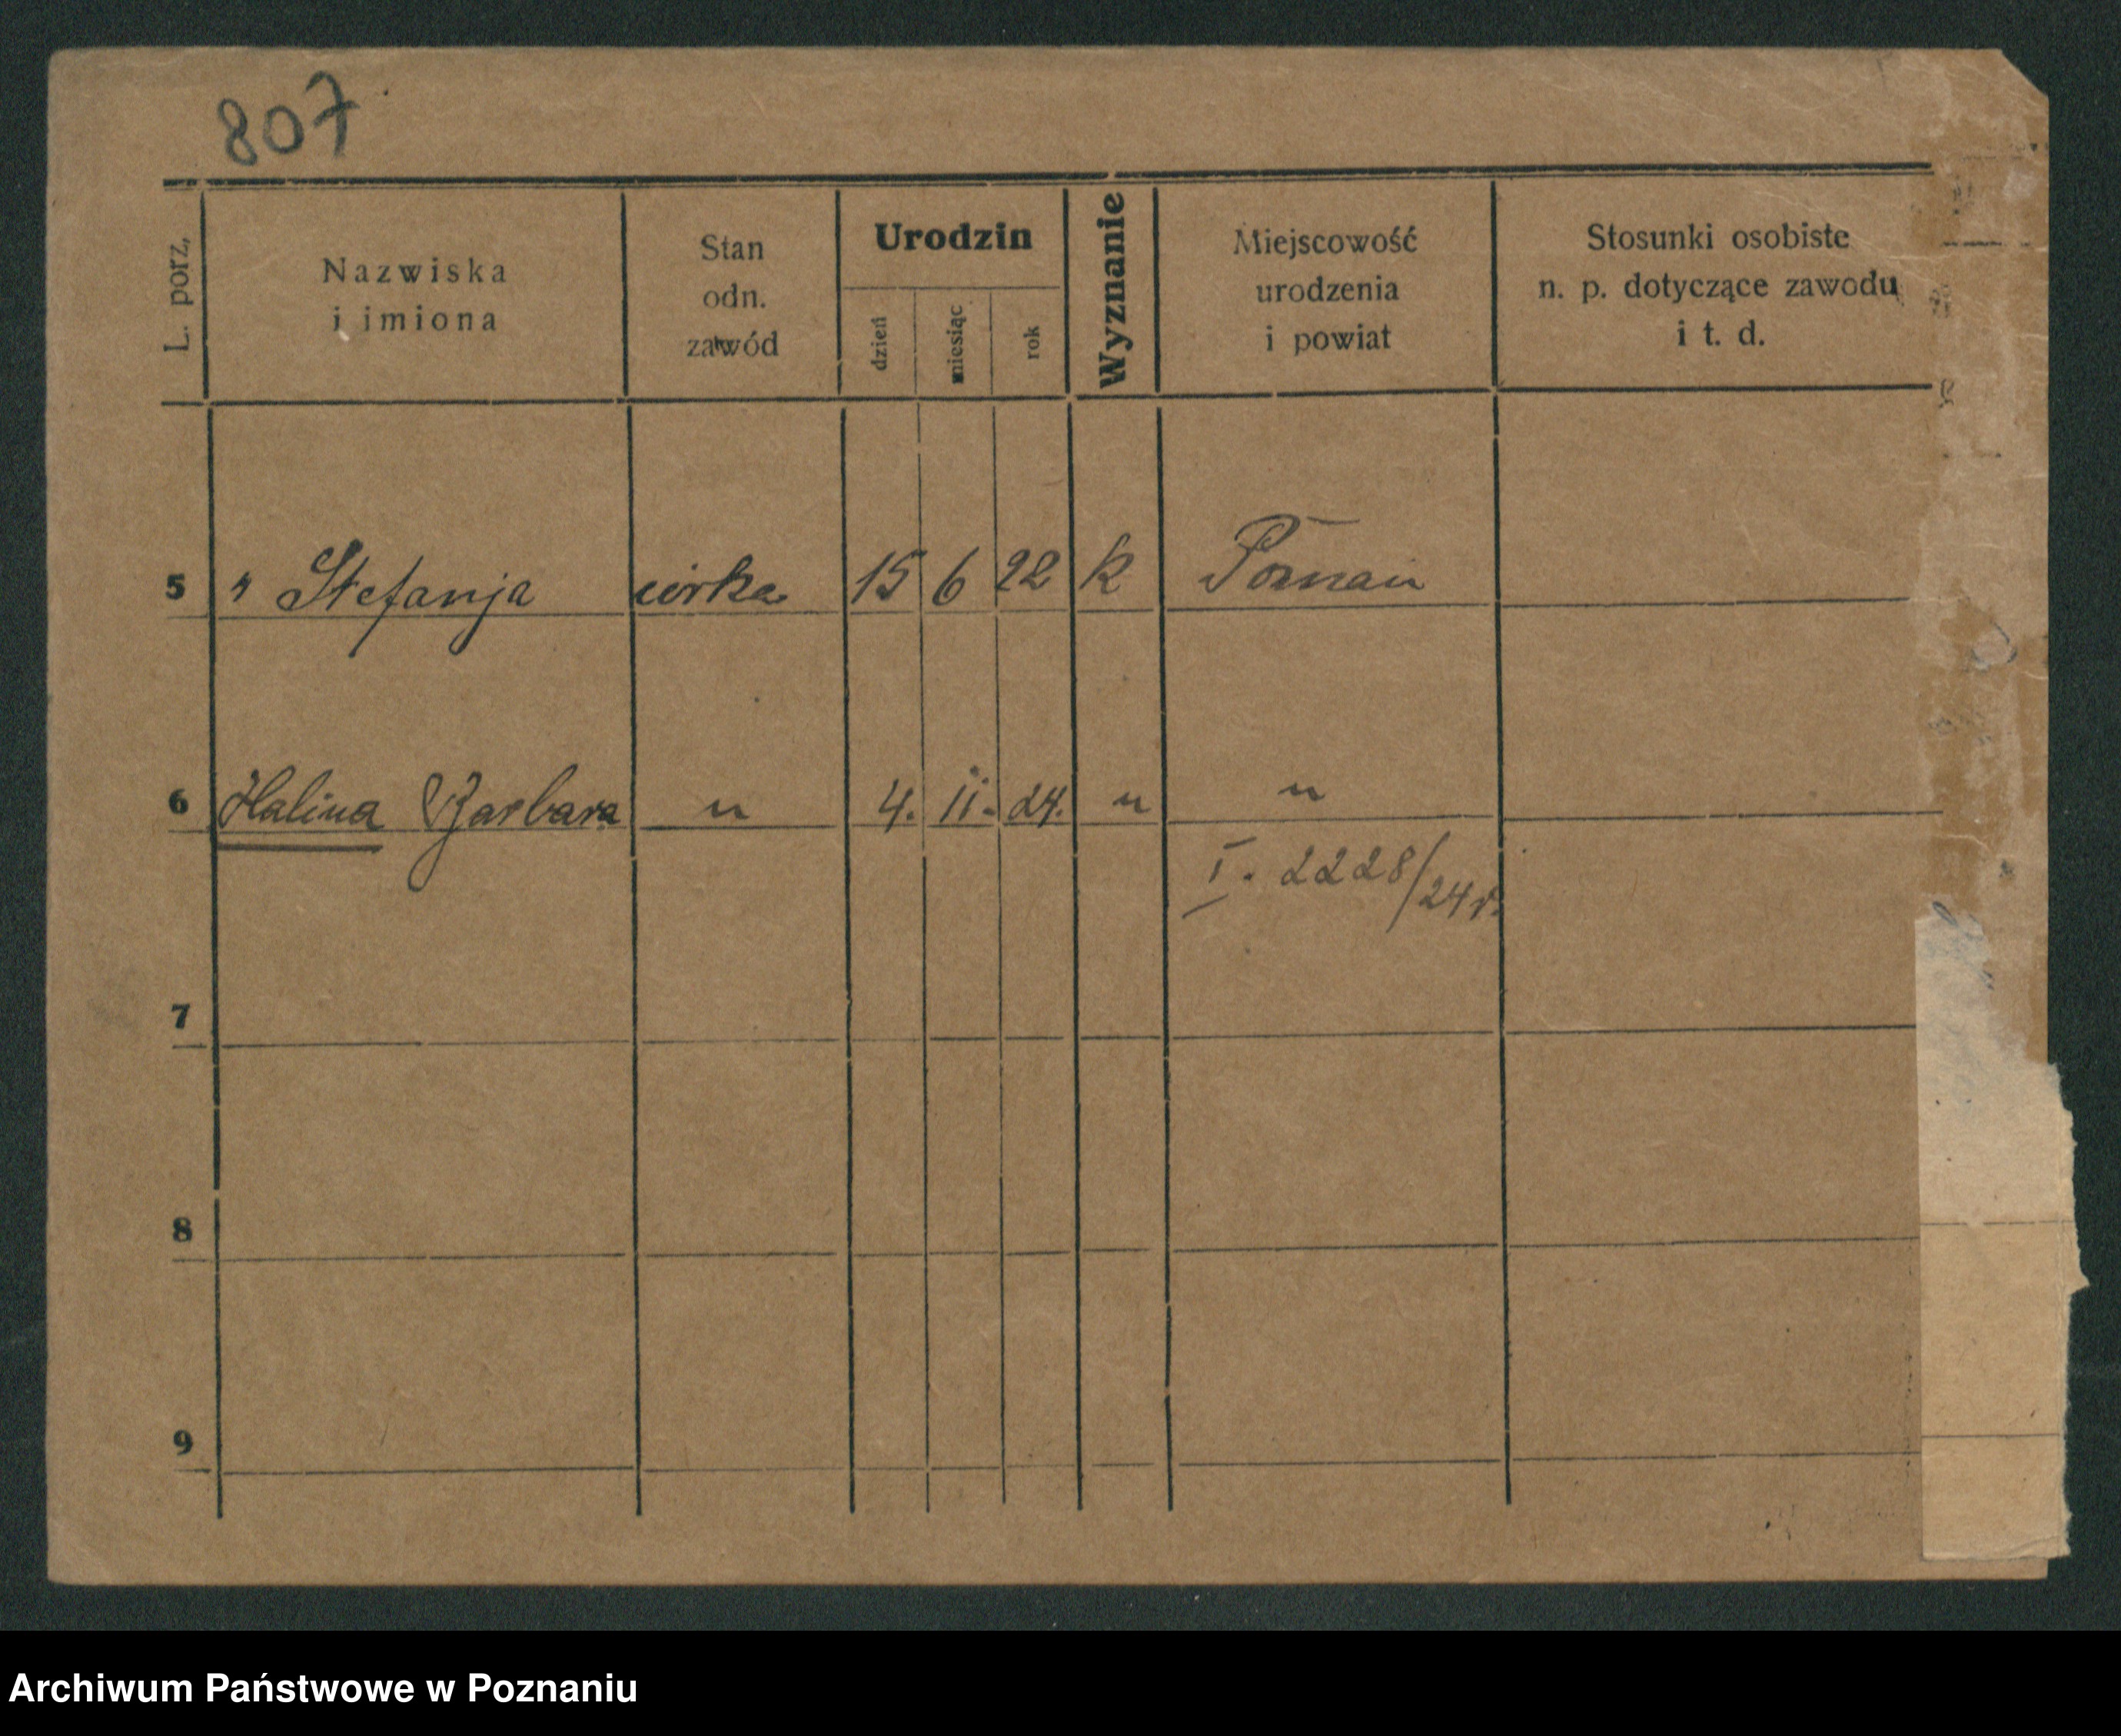 807
L. porz,
Nazwiska
i imiona
Stan
odn.
zawód
Urodzin
dzień
miesiąc
rok
Wyznanie
Miejscowość
urodzenia
i powiat
Stosunki osobiste
n. p. dotyczące zawodu
i t. d.
5 " Stefanja córka 15 6 22 k Poznań
6 Halina Barbara " 4. 11. 24. " "
I. 2228/24 r.
7
8
9
Archiwum Państwowe w Poznaniu